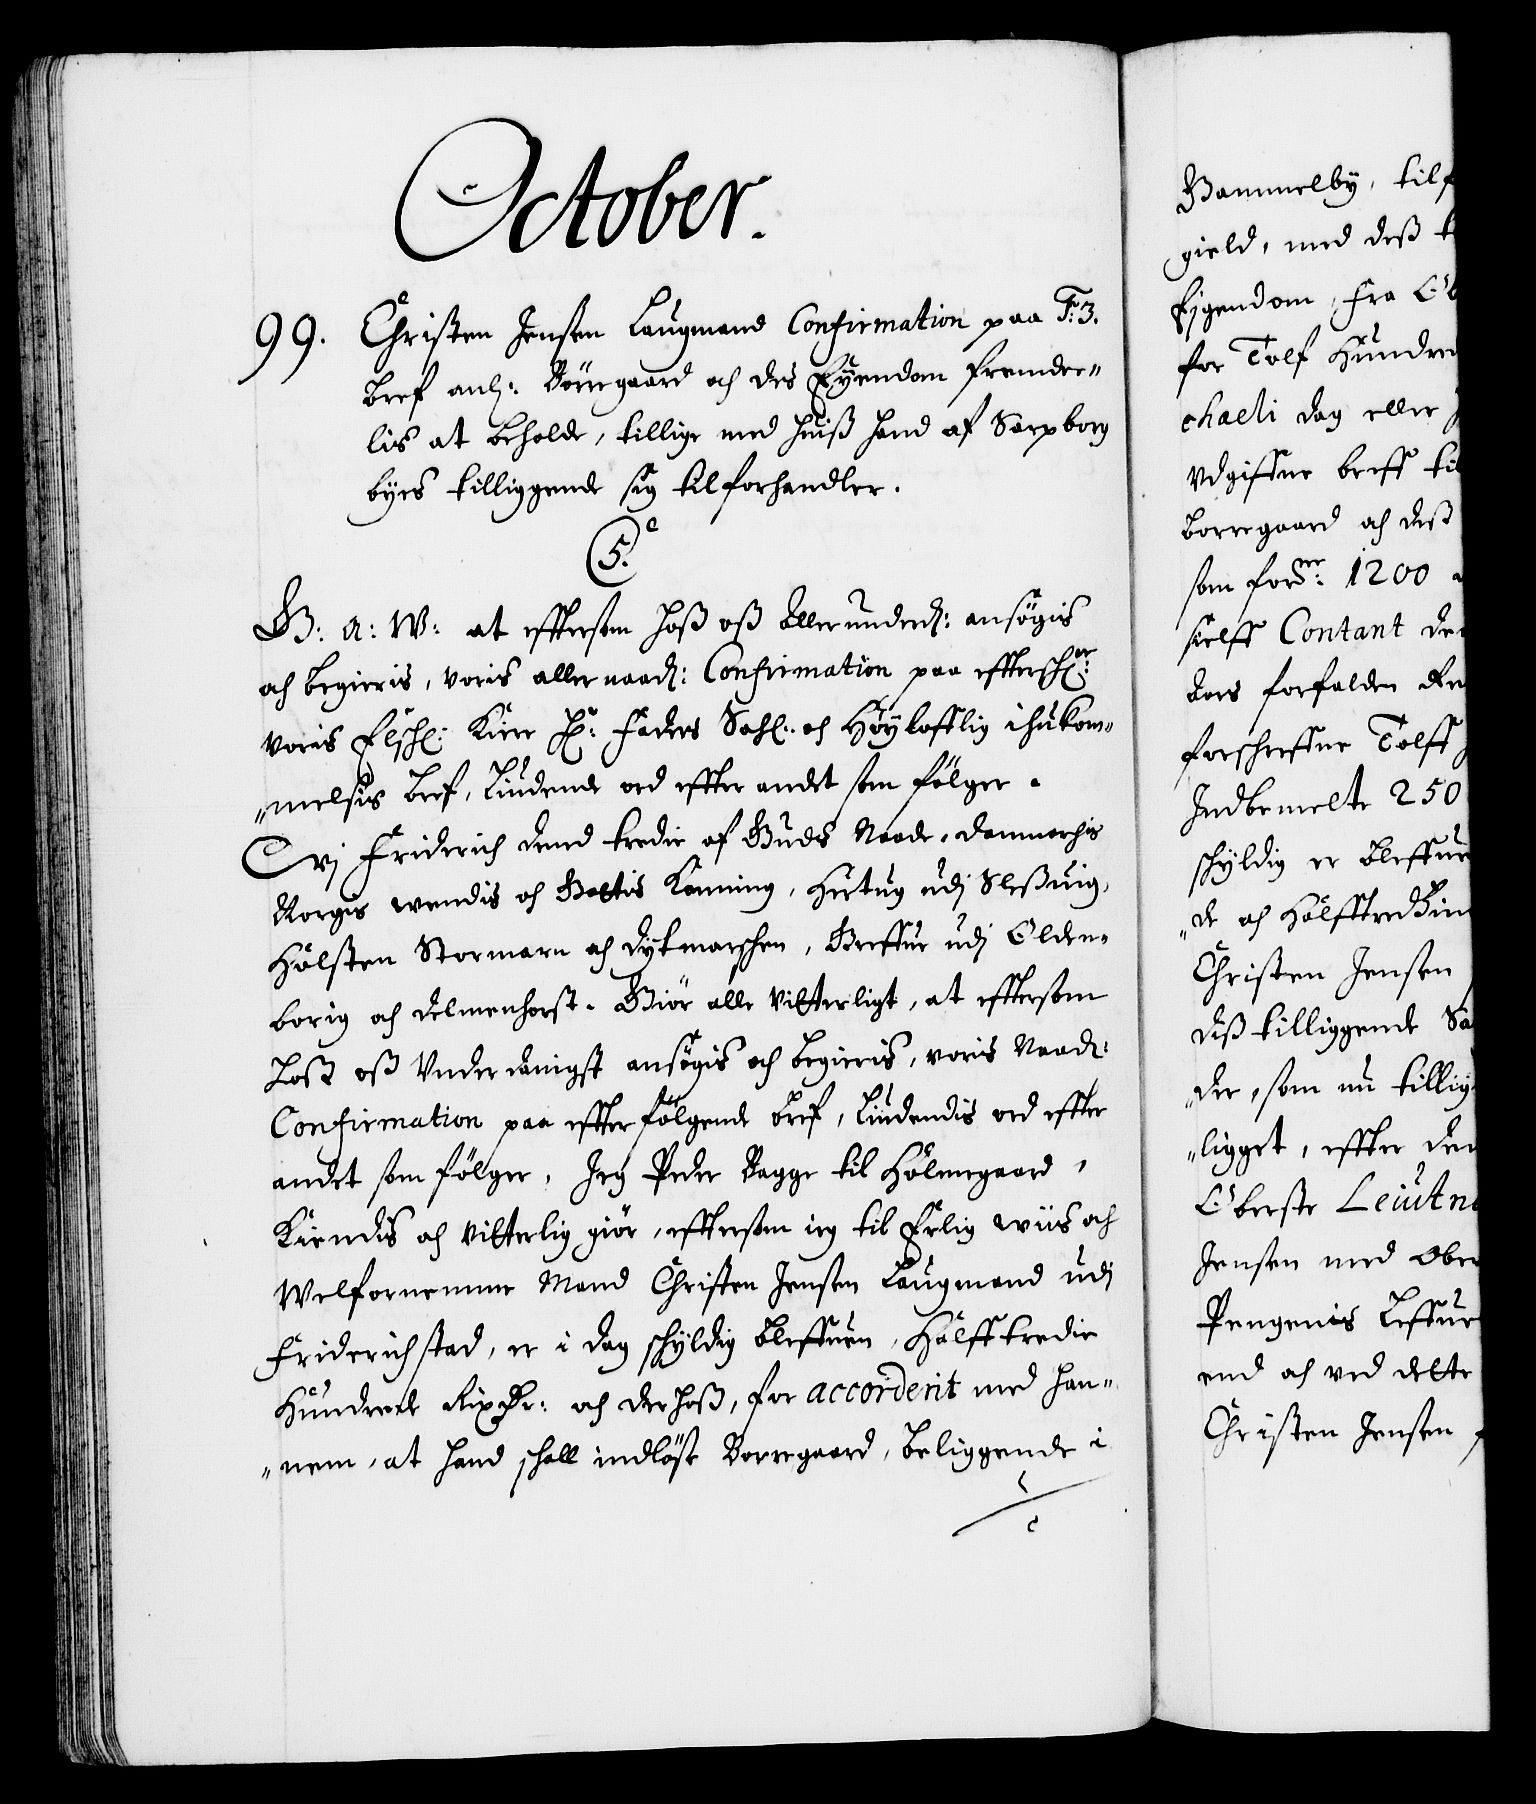 October.
99. Christen Jensen Laugmand Confirmation paa F: 3.
bref anl: Borregaard och des Eyendom fremdee-
lis at beholde, tillige med huiß hand af Sarpborg
byes tilliggende sig tilforhandler.
5.
G: A: W: at efftersom hoß oß allerunderd: ansøgis
och begieris, voris allernaad: Confirmation paa effterschr:
voris Elschl: Kiere H: Faders Sahl: och Høylofflig ihukom-
melsis bref, Liudende ord effter andet som følger.
Wi Friderich dend tredie af Guds Naade, Danmarchis
Norgis Wendis och Gottis Konning, Hertug udj Sleßuig,
Holsten Stormarn och Dytmarschen, Greffue udj Olden-
borig och Delmenhorst. Giør alle Vitterligt, at efftersom
hoß oß Underdanigst ansøgis och begieris, voris Naad:
Confirmation paa effterfølgende bref, Liudendis ord effter
andet som følger, Jeg Peder Bagge til Holmegaard,
Kiendis och Vitterlig giør, efftersom ieg til Erlig wiis och
Welfornemme Mand Christen Jensen Laugmand udj
Friderichstad, er i dag schyldig bleffuen, Halfftredie
Hundrede RixDr: och derhoß, for accorderit med han-
nem, at hand schall indløse Borregaard, beliggende i
Gammelby, til
gield, med deß
Eygendom, fra
for Tolf Hundre
chaeli dag eller
Vdgiffne breff til
Borregaard och deß
som fordner: 1200
sielff Contant
forfalden
forschreffne Tolff
Indbemelte 250
schyldig er bleffue
de och Halfftredsin
Christen Jensen
deß tilliggende Sa
der, som nu tillig
ligget, effter den
Oberste Leiutn
Jensen med Obe
Pengenis Leffue
end och ved dette
Christen Jensen